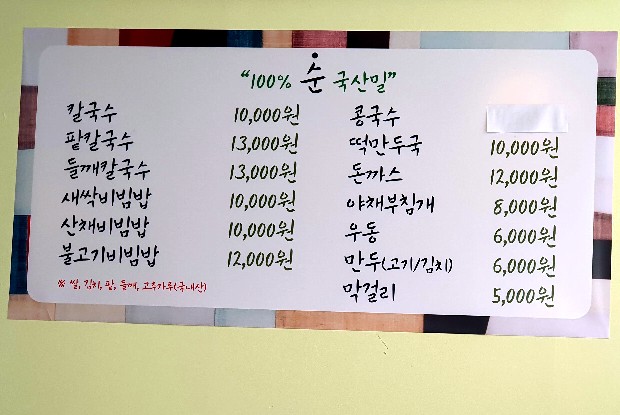 "100% 순 국산밀"
칼국수 10,000원
팥칼국수 13,000원
들깨칼국수 13,000원
새싹비빔밥 10,000원
산채비빔밥 10,000원
불고기비빔밥 12,000원
※ 쌀, 김치, 팥, 들깨, 고추가루(국내산)
콩국수
떡만두국 10,000원
돈까스 12,000원
야채부침개 8,000원
우동 6,000원
만두(고기/김치) 6,000원
막걸리 5,000원